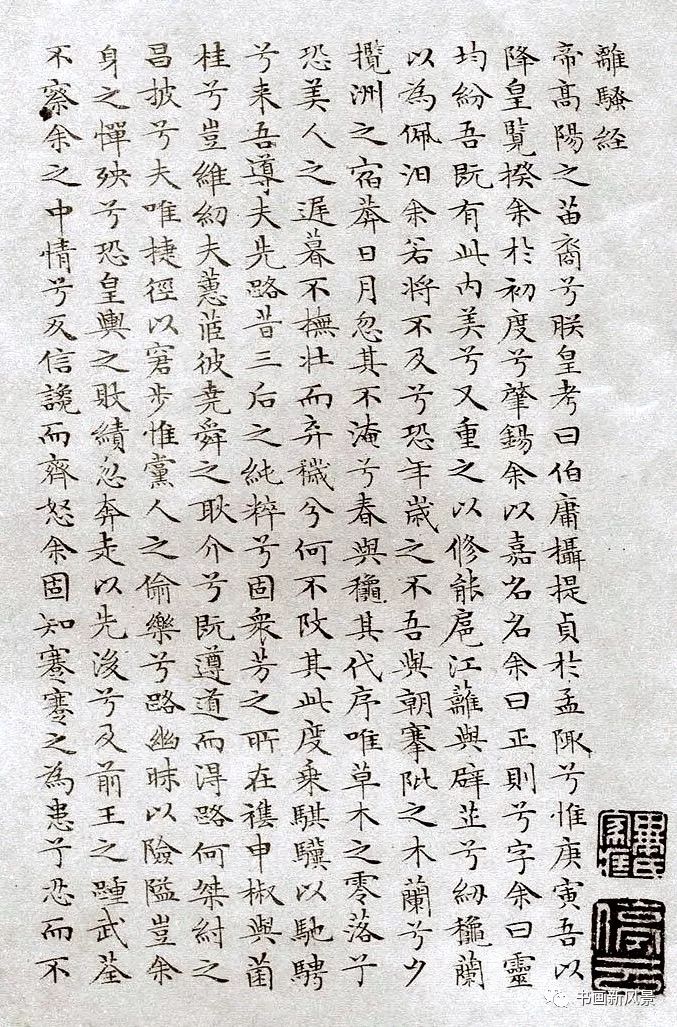 離騷経
帝髙陽之苗裔兮朕皇考曰伯庸攝提貞於孟陬兮惟庚寅吾以
降皇覽揆余於初度兮肇錫余以嘉名名余曰正則兮字余曰靈
均紛吾既有此内美兮又重之以修能扈江蘺與辟芷兮紉龝蘭
以為佩汨余若將不及兮恐年歲之不吾與朝搴阰之木蘭兮夕
攬洲之宿莽日月忽其不淹兮春與龝其代序唯草木之零落兮
恐美人之遲暮不撫壯而弃穢兮何不改其此度乗騏驥以馳騁
兮来吾導夫先路昔三后之純粹兮固衆芳之所在襍申椒與菌
桂兮豈維紉夫蕙茝彼堯舜之耿介兮既遵道而得路何桀紂之
昌披兮夫唯捷徑以窘步惟黨人之偷樂兮路幽昧以險隘豈余
身之憚殃兮恐皇輿之敗績忽奔走以先後兮及前王之踵武荃
不察余之中情兮反信讒而齊怒余固知謇謇之為患兮忍而不
书画新风景